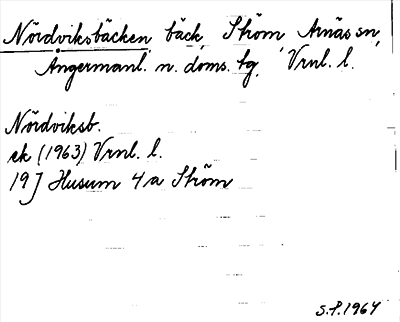 Nördviksbäcken, bäck, Ström, Arnäs sn,
Ångermanl. n. doms. tg, Vrnl. l.
Nördviksb.
ek (1963) Vrnl. l.
19J Husum 4a Ström
S.P. 1964